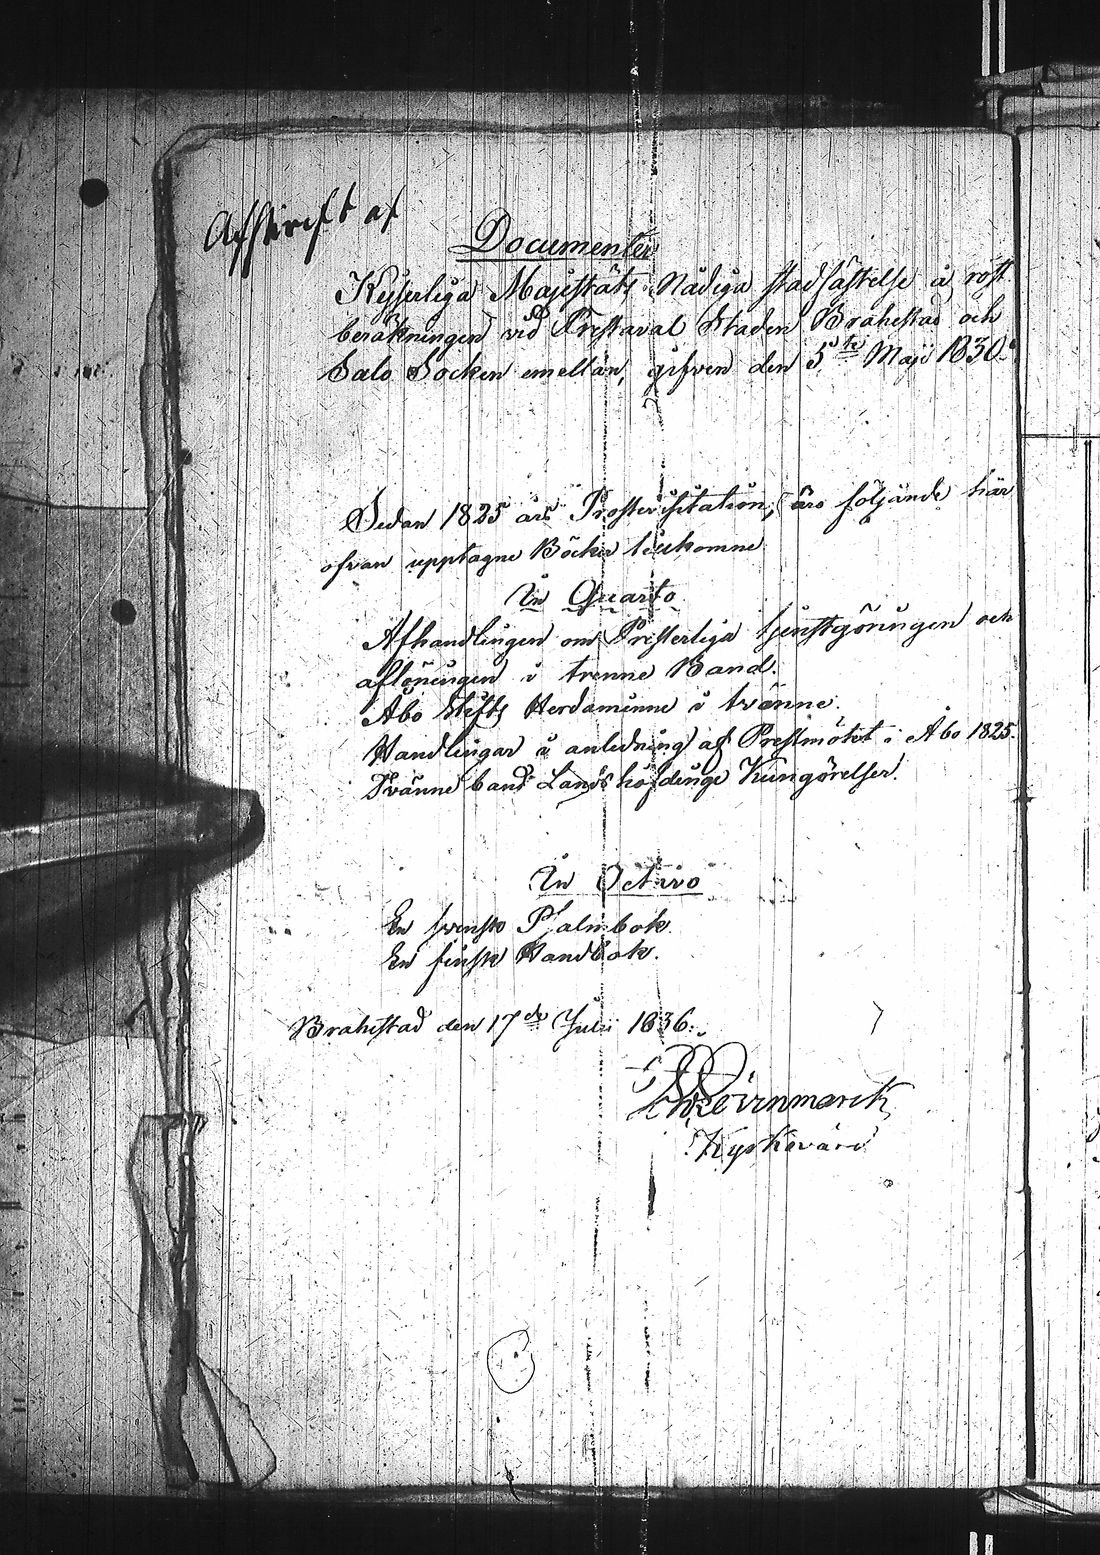 Afskrift af
Documenter
Kejserliga Majestäts Nådiga stadfästelse å röst
beräkningen vid Prestaval Staden Brahestad och
Salo Socken emellan, gifven den 5te Maji 1830.
Sedan 1825 års Prostevisitation, äro följande här
ofvan upptagne Böcker tilkomne
In Quarto
Afhandlingen om Presterliga tjenstgöringen och
aflöningen i trenne Band.
Åbo Stifts Herdaminne i tvänne.
Handlingar i anledning af Prestmötet i Åbo 1825.
Tvänne band Landshöfdinge Kungörelser.
In Octavo
En svensk Psalmbok.
En finsk Handbok.
Brahestad den 17de Julii 1836.
Kyrkovärd